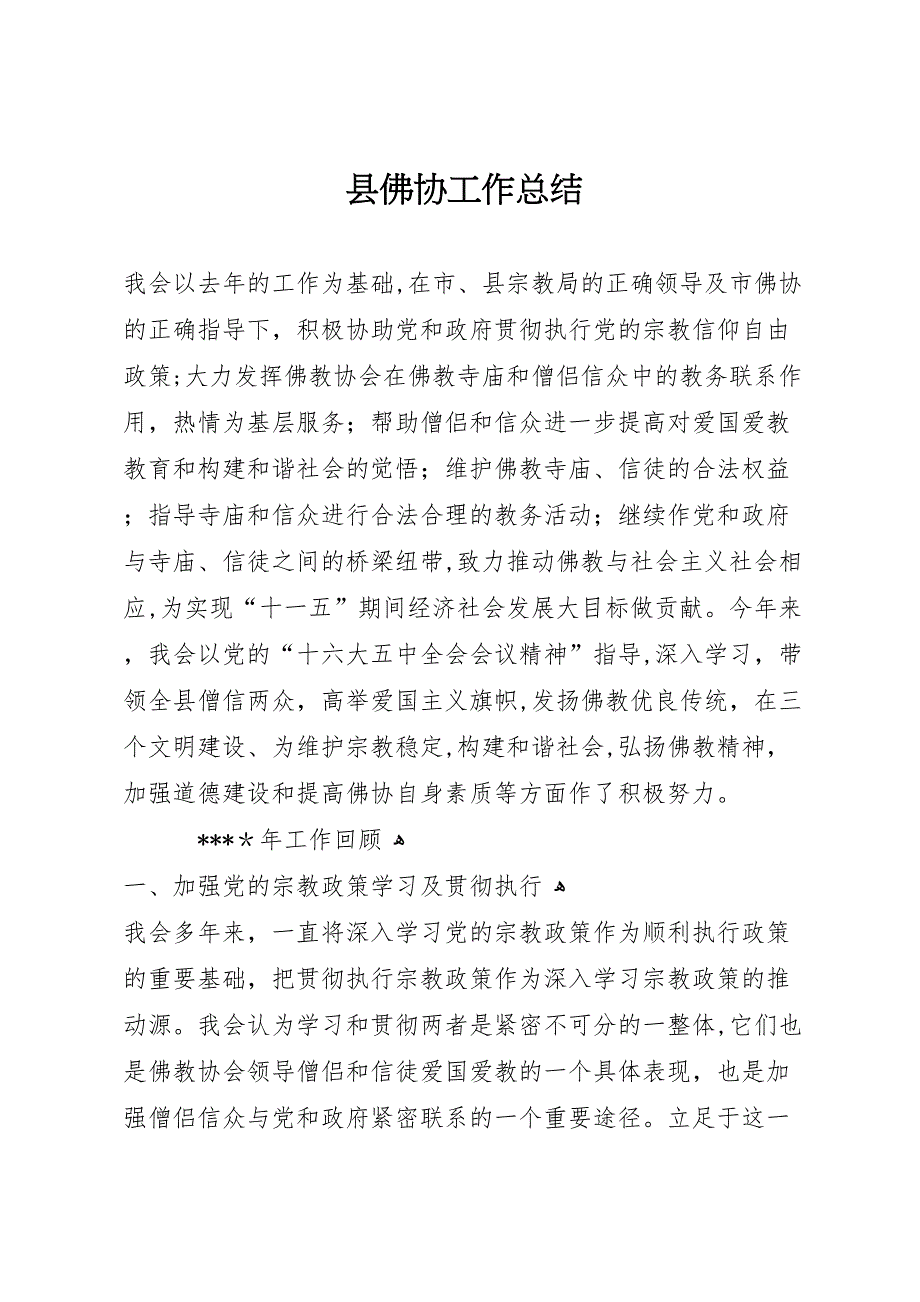 县佛协工作总结
我会以去年的工作为基础,在市、县宗教局的正确领导及市佛协
的正确指导下，积极协助党和政府贯彻执行党的宗教信仰自由
政策;大力发挥佛教协会在佛教寺庙和僧侣信众中的教务联系作
用，热情为基层服务；帮助僧侣和信众进一步提高对爱国爱教
教育和构建和谐社会的觉悟；维护佛教寺庙、信徒的合法权益
；指导寺庙和信众进行合法合理的教务活动；继续作党和政府
与寺庙、信徒之间的桥梁纽带,致力推动佛教与社会主义社会相
应,为实现“十一五”期间经济社会发展大目标做贡献。今年来
，我会以党的“十六大五中全会会议精神”指导,深入学习，带
领全县僧信两众，高举爱国主义旗帜,发扬佛教优良传统，在三
个文明建设、为维护宗教稳定,构建和谐社会,弘扬佛教精神，
加强道德建设和提高佛协自身素质等方面作了积极努力。
***＊年工作回顾ﻫ
一、加强党的宗教政策学习及贯彻执行ﻫ
我会多年来，一直将深入学习党的宗教政策作为顺利执行政策
的重要基础，把贯彻执行宗教政策作为深入学习宗教政策的推
动源。我会认为学习和贯彻两者是紧密不可分的一整体,它们也
是佛教协会领导僧侣和信徒爱国爱教的一个具体表现，也是加
强僧侣信众与党和政府紧密联系的一个重要途径。立足于这一